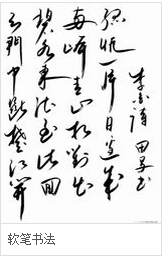 天门中断楚江开
碧水东流至此回
两岸青山相对出
孤帆一片日边来
李白诗 田 书
软笔书法